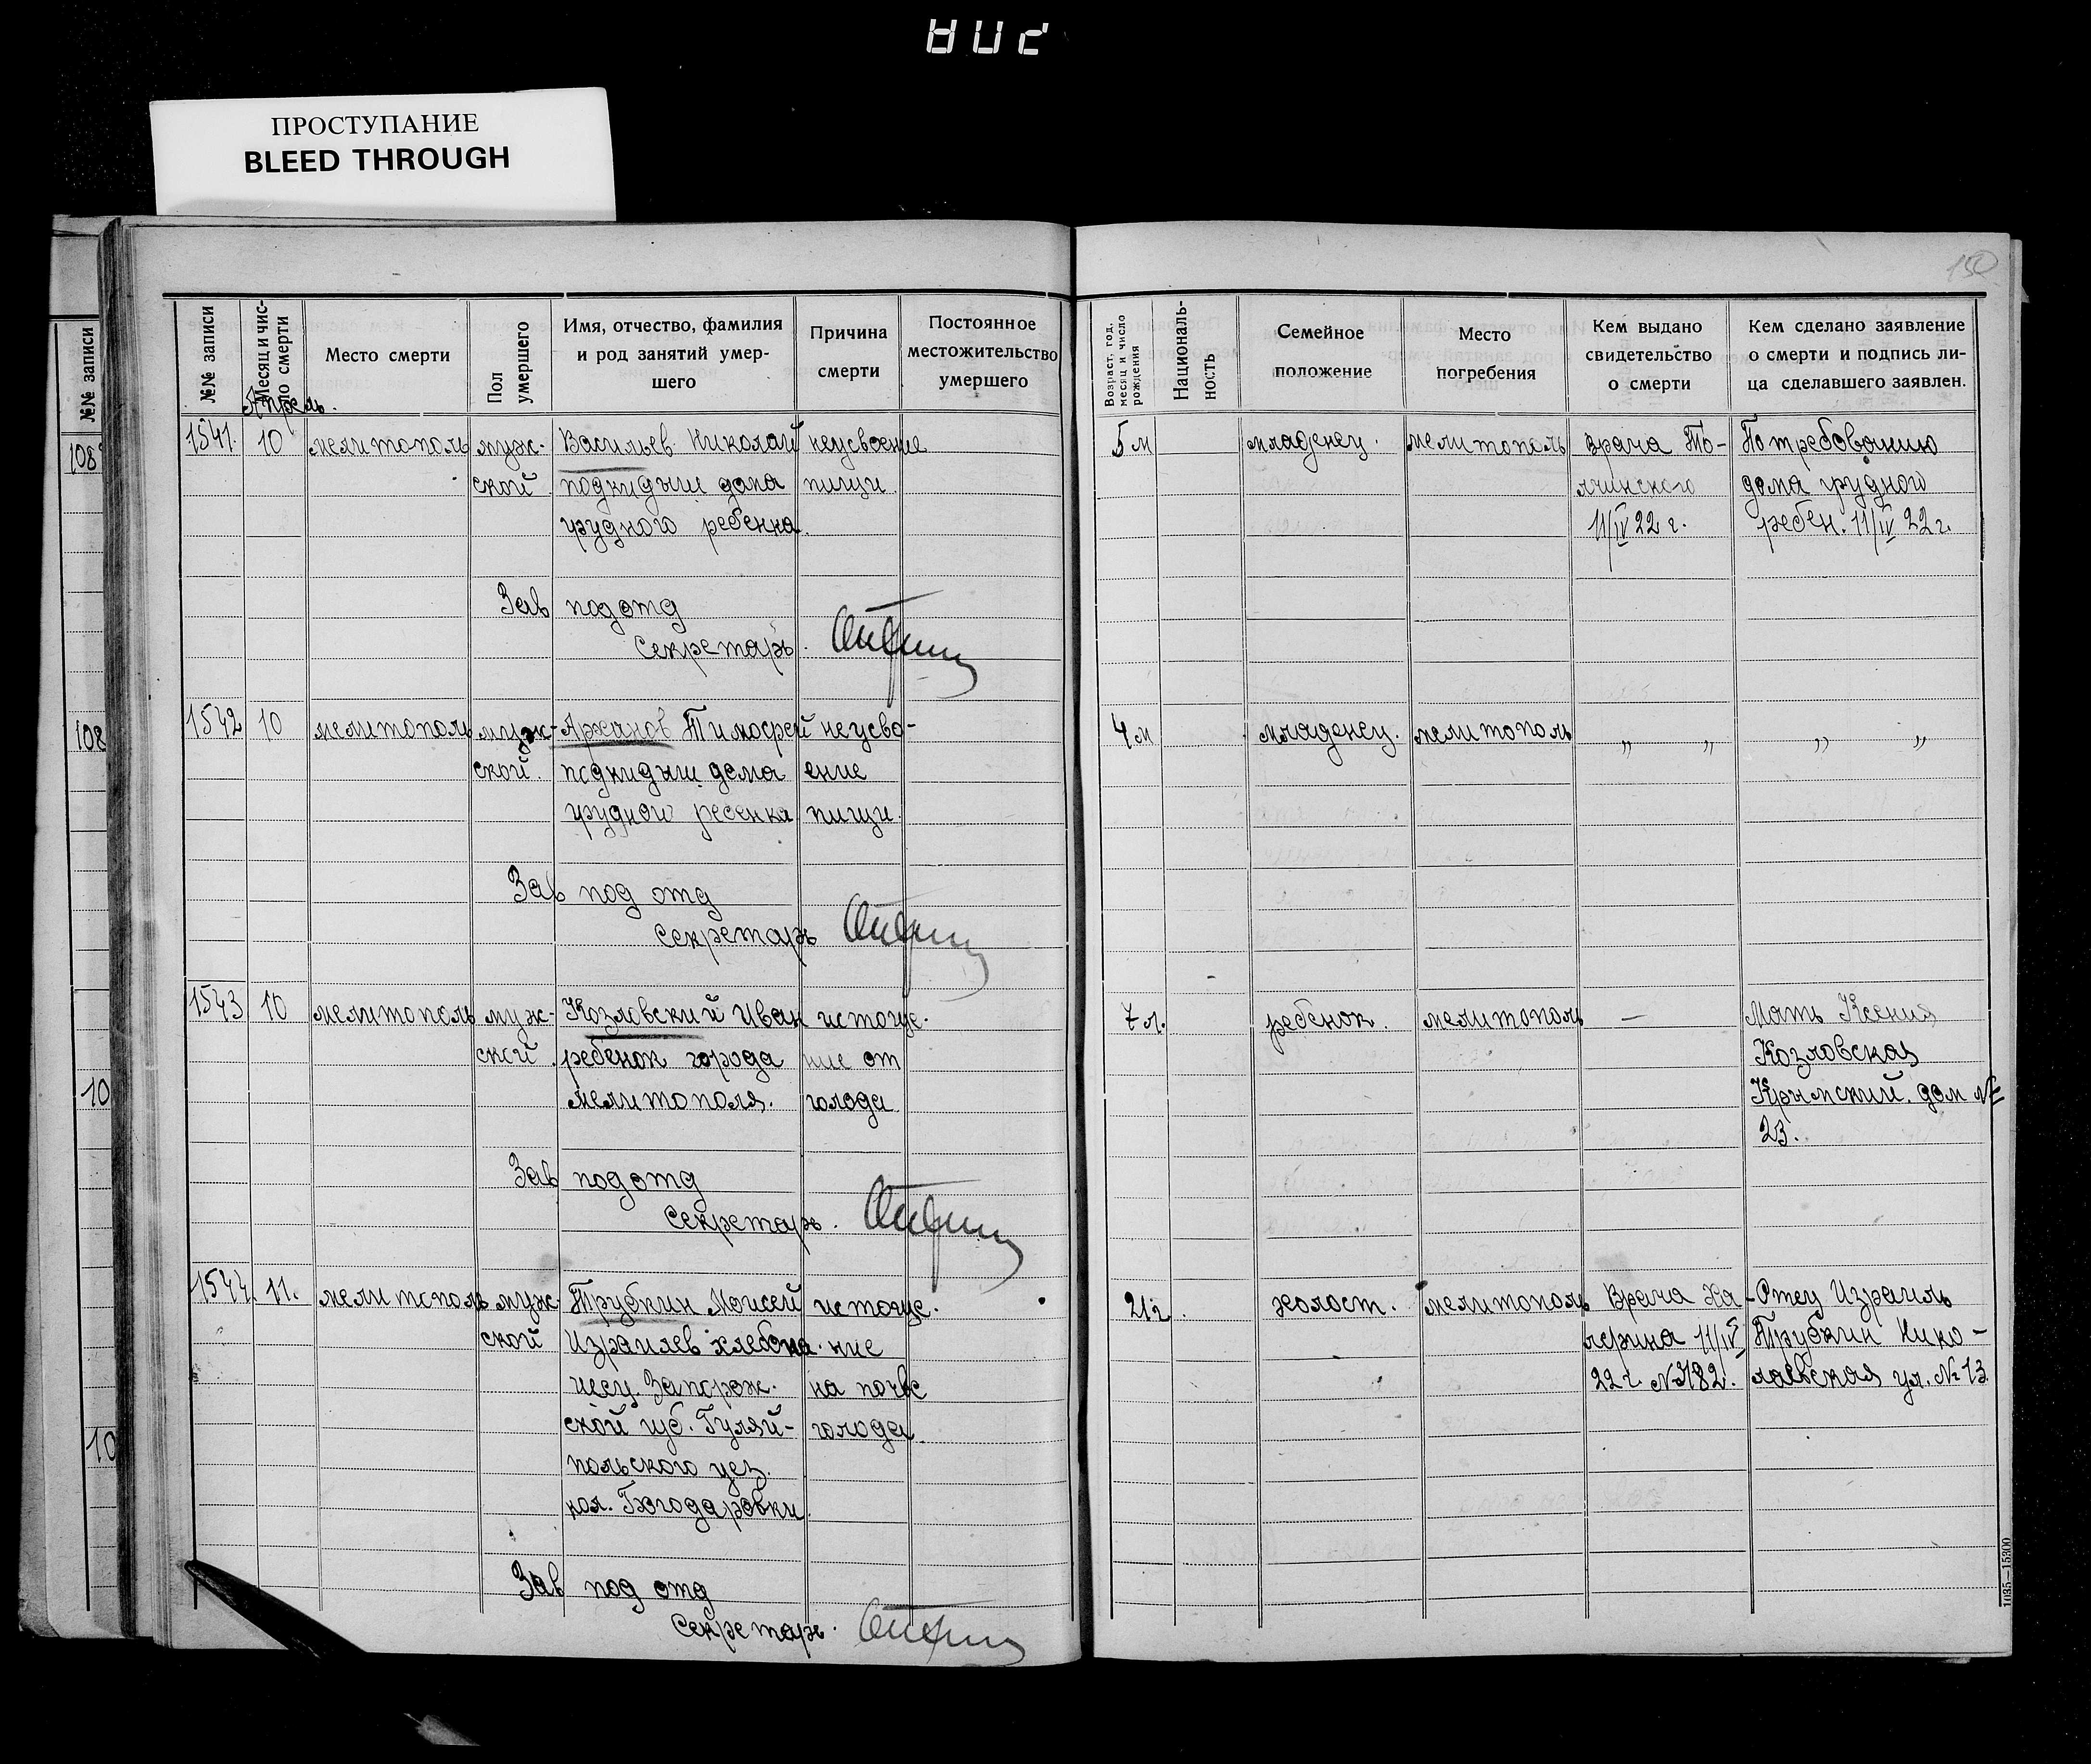 ПРОСТУПАНИЕ
BLEED THROUGH
150
№№ записи
108
108
10
10
№№ записи
Месяц и чис-
ло смерти
Место смерти
Пол
умершего
Имя, отчество, фамилия
и род занятий умер-
шего
Причина
смерти
Постоянное
местожительство
умершего
Возраст, год,
месяц и число
рождения
Националь-
ность
Семейное
положение
Место
погребения
Кем выдано
свидетельство
о смерти
Кем сделано заявление
о смерти и подпись ли-
ца сделавшего заявлен.
Апрель.
1541. 10 мелитополь муж- Васильев Николай неусвоение 5 м младенец. мелитополь врача То- По требованию
ской подкидыш дома пищи. дома грудного
грудного ребенка. 11/IV 22 г. ребен. 11/IV 22 г.
Зав подотд
Секретарь.
1542 10 мелитополь муж- Тимофей неусво- 4 м младенец. мелитополь „ „ „ „
ской. подкидыш дома ение
грудного ребенка пищи.
Зав под отд
Секретарь
1543 10 мелитополь муж- Козловский Иван истоще- 7 л. ребенок. мелитополь — Мать Ксения
ской. ребенок города ние от Козловская
мелитополя. голода. Крымский. дом №
23.
Зав подотд
Секретарь.
1544. 11. мелитополь муж- Трубкин Моисей истоще- 21 г. холост. мелитополь Врача Ха- Отец Израиль
ской Израилев хлебопа- ние 11/IV Трубкин Нико-
шец. Запорож- на почве 22 г. № 182. лаевская ул. № 13
ской губ. Гуляй- голода.
польского уез.
кол.
Зав под отд
Секретарь.
1035—15300